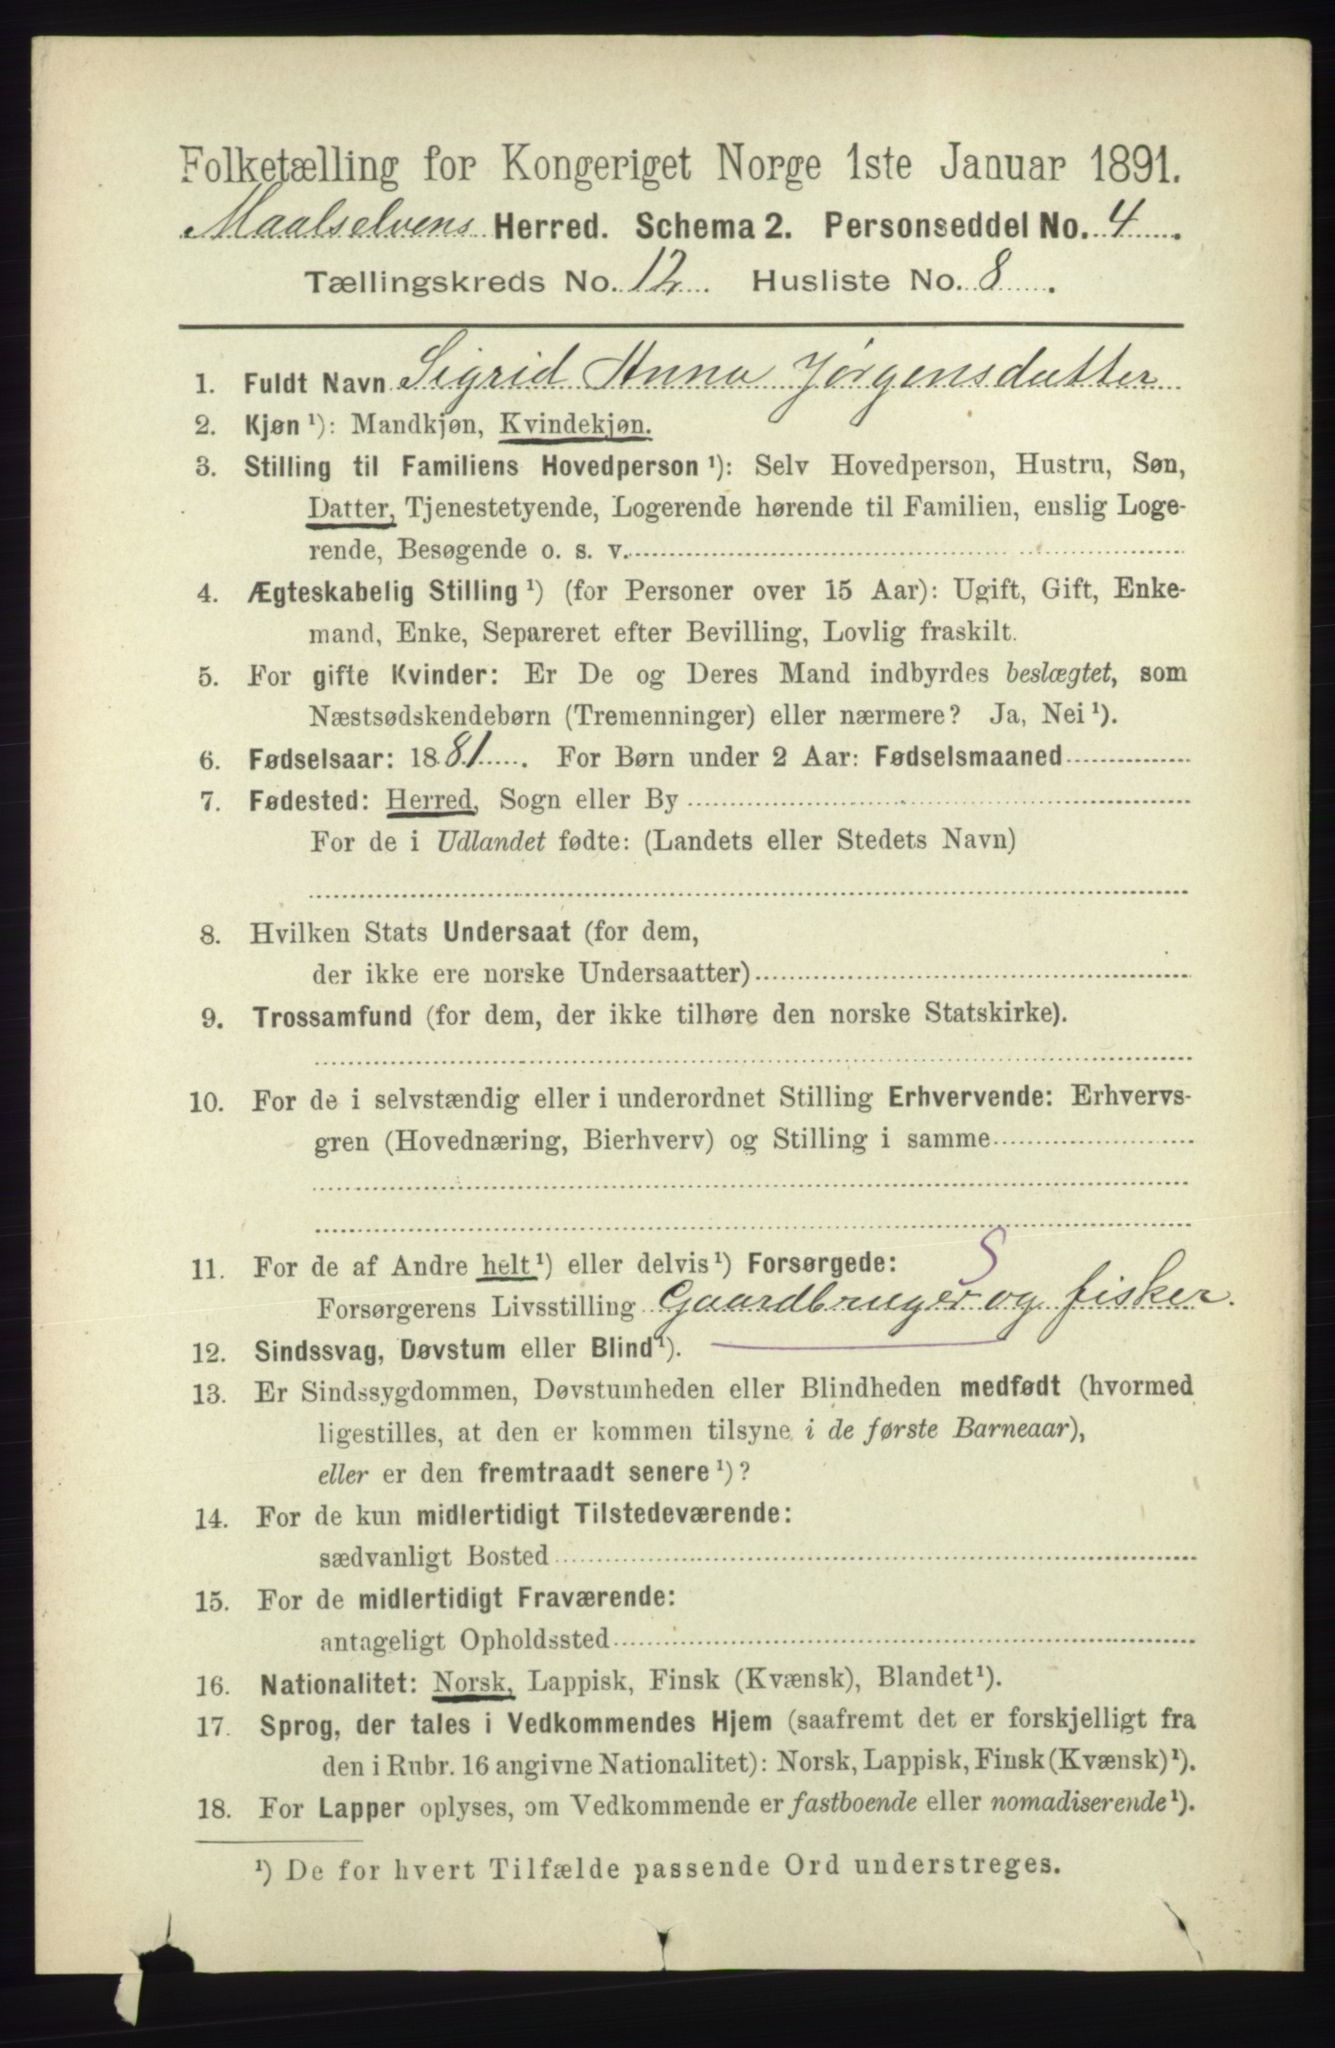 Folketælling for Kongeriget Norge 1ste Januar 1891.
Maalselvens Herred. Schema 2. Personseddel No. 4
Tællingskreds No. 12. Husliste No. 8.
1. Fuldt Navn Sigrid Anna Jørgensdatter
2. Kjøn ¹): Mandkjøn, Kvindekjøn.
3. Stilling til Familiens Hovedperson ¹): Selv Hovedperson, Hustru, Søn,
Datter, Tjenestetyende, Logerende hørende til Familien, enslig Loge-
rende, Besøgende o. s. v.
4. Ægteskabelig Stilling ¹) (for Personer over 15 Aar): Ugift, Gift, Enke-
mand, Enke, Separeret efter Bevilling, Lovlig fraskilt.
5. For gifte Kvinder: Er De og Deres Mand indbyrdes beslægtet, som
Næstsødskendebørn (Tremenninger) eller nærmere? Ja, Nei ¹).
6. Fødselsaar: 1881. For Børn under 2 Aar: Fødselsmaaned
7. Fødested: Herred, Sogn eller By
For de i Udlandet fødte: (Landets eller Stedets Navn)
8. Hvilken Stats Undersaat (for dem,
der ikke ere norske Undersaatter)
9. Trossamfund (for dem, der ikke tilhøre den norske Statskirke).
10. For de i selvstændig eller i underordnet Stilling Erhvervende: Erhvervs-
gren (Hovednæring, Bierhverv) og Stilling i samme
11. For de af Andre helt ¹) eller delvis ¹) Forsørgede: S
Forsørgerens Livsstilling Gaardbruger og fisker.
12. Sindssvag, Døvstum eller Blind ¹).
13. Er Sindssygdommen, Døvstumheden eller Blindheden medfødt (hvormed
ligestilles, at den er kommen tilsyne i de første Barneaar),
eller er den fremtraadt senere ¹)?
14. For de kun midlertidigt Tilstedeværende:
sædvanligt Bosted
15. For de midlertidigt Fraværende:
antageligt Opholdssted
16. Nationalitet: Norsk, Lappisk, Finsk (Kvænsk), Blandet ¹).
17. Sprog, der tales i Vedkommendes Hjem (saafremt det er forskjelligt fra
den i Rubr. 16 angivne Nationalitet): Norsk, Lappisk, Finsk (Kvænsk) ¹).
18. For Lapper oplyses, om Vedkommende er fastboende eller nomadiserende ¹).
¹) De for hvert Tilfælde passende Ord understreges.